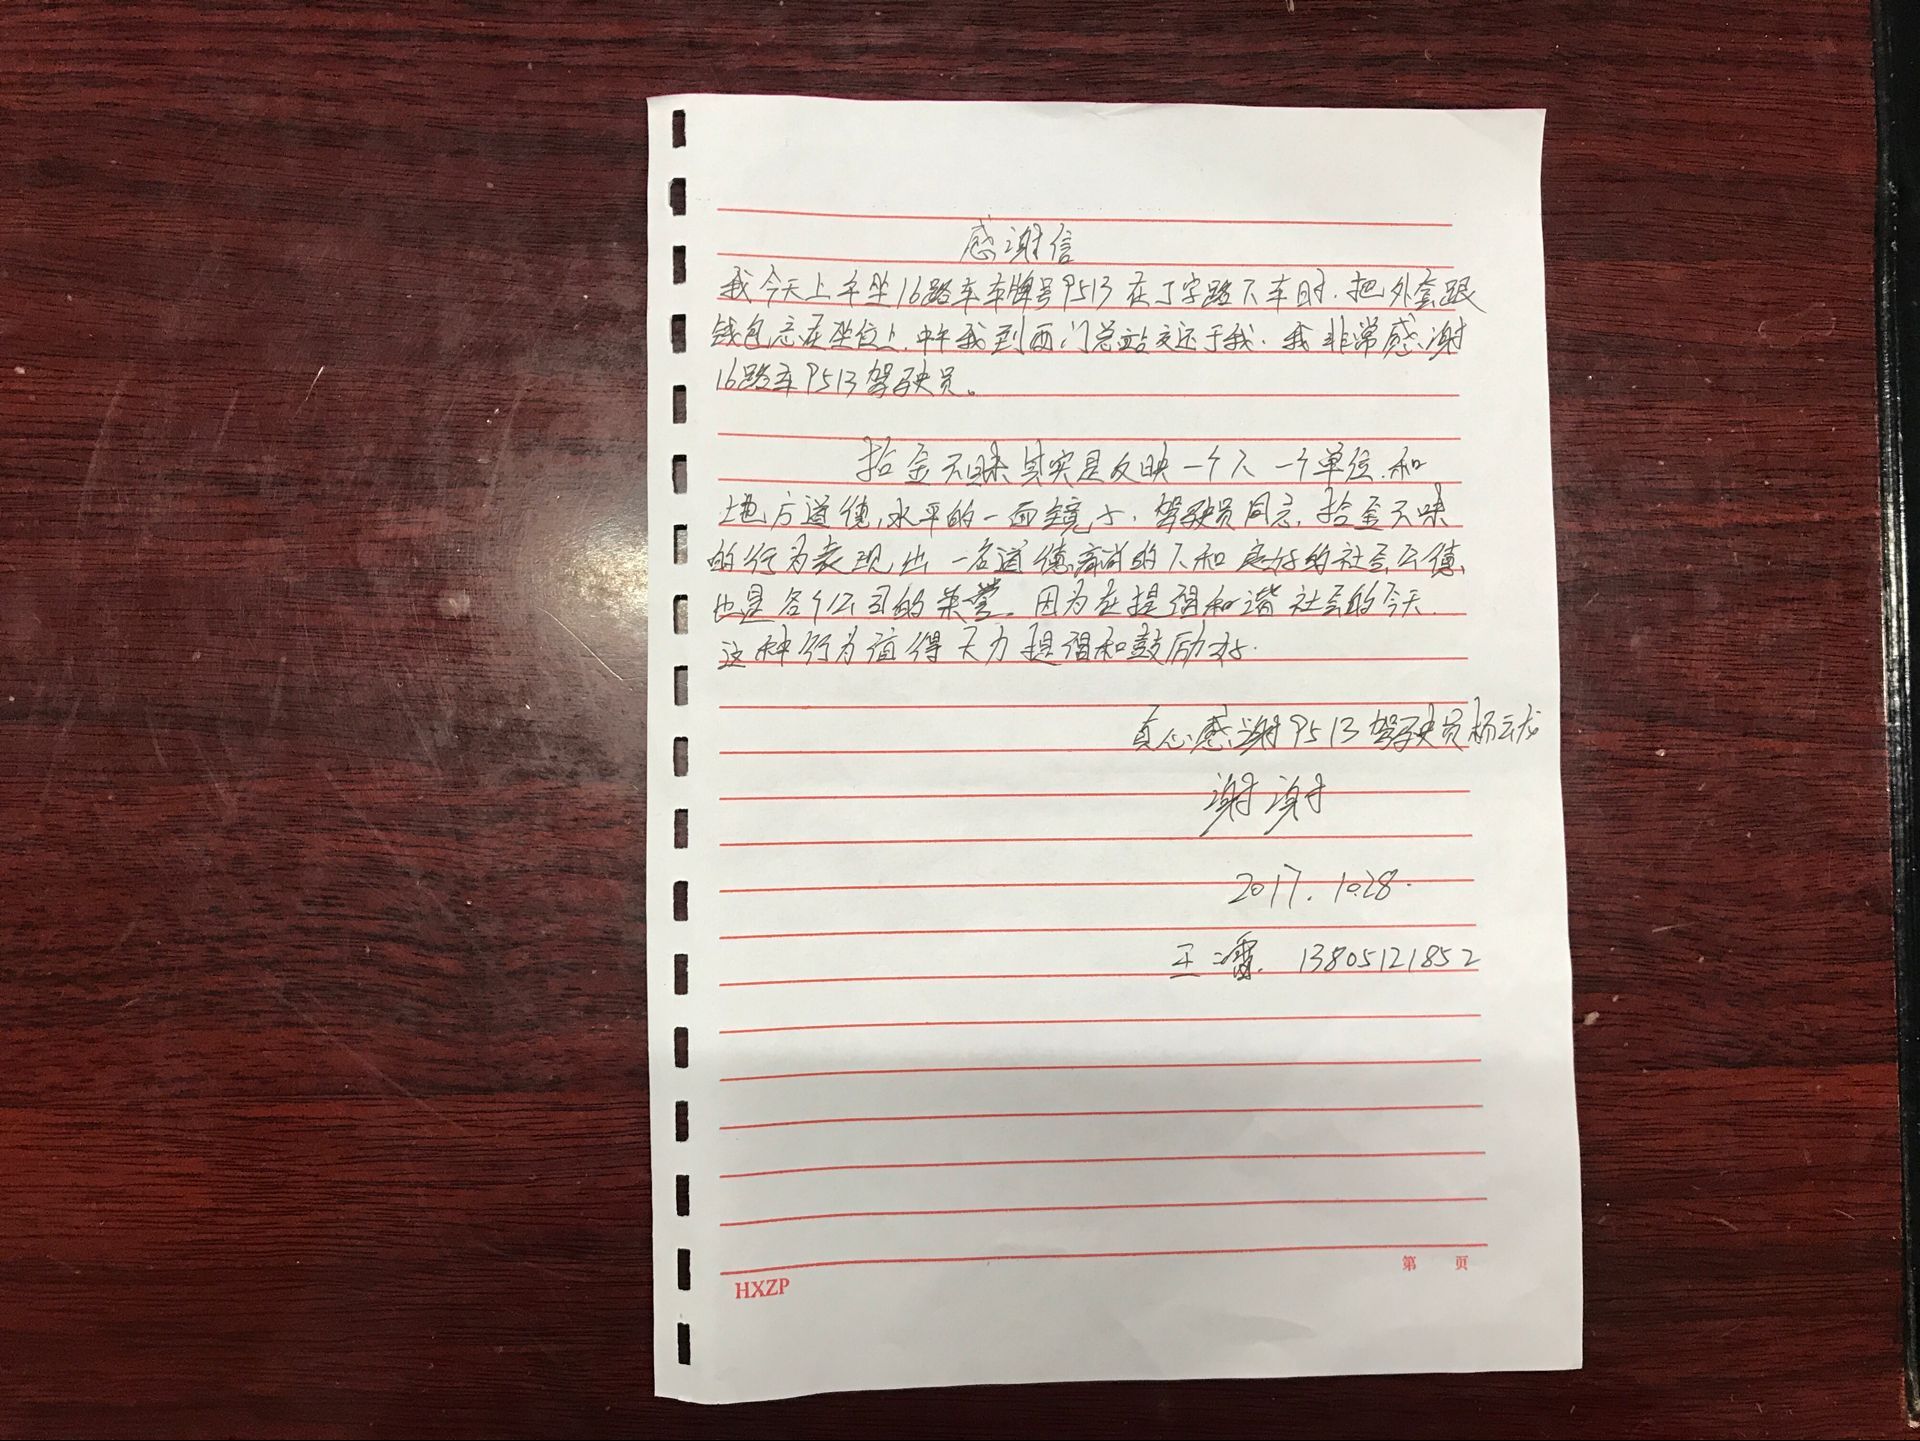 感谢信
我今天上午坐16路车车牌号9513在丁字路下车时.把外套跟
钱包忘在坐位上.中午我到西门总站交还于我.我非常感谢
16路车9513驾驶员。
拾金不昧其实是反映一个人一个单位.和
地方道德水平的一面镜子.驾驶员同志.拾金不昧
的行为表现出一名道德高尚的人和良好的社会公德.
也是各个公司的荣誉.因为在提倡和谐社会的今天.
这种行为值得大力提倡和鼓励才.
真心感谢9513驾驶员杨云龙
谢谢
2017.10.28.
王 13805121852
第 页
HXZP